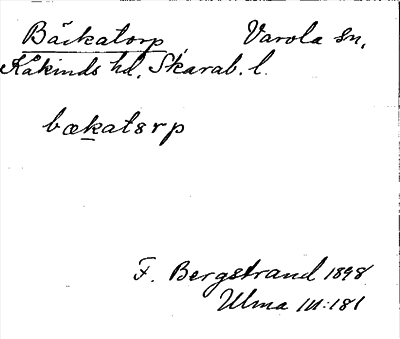 Bäckatorp, Varola sn,
Kåkinds hd, Skarab. l.
bækatorp
F. Bergstrand 1898
Ulma III:181